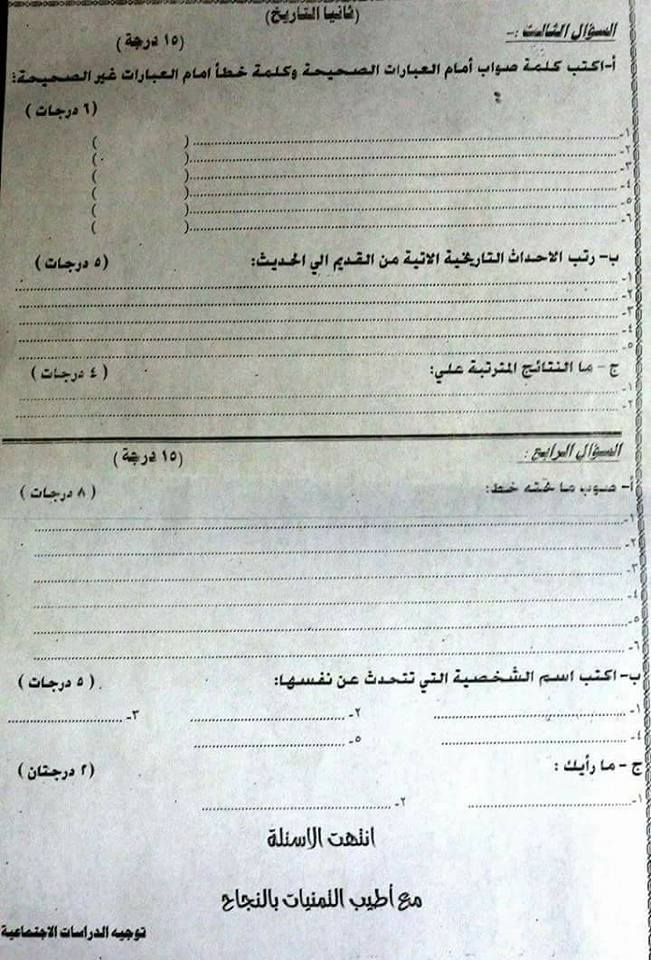 (ثانيا التاريخ)
السؤال الثالث :- (١٥ درجة )
أ-اكتب كلمة صواب أمام العبارات الصحيحة وكلمة خطأ امام العبارات غير الصحيحة:
(٦ درجات )
١- ................ ( )
٢- ................ ( )
٣- ................ ( )
٤- ................ ( )
٥- ................ ( )
٦- ................ ( )
ب- رتب الاحداث التاريخية الاتية من القديم الي الحديث: (٥ درجات )
١- ................
٢- ................
٣- ................
٤- ................
٥- ................
ج - ما النتائج المترتبة علي: ( ٤ درجات )
١- ................
٢- ................
السؤال الرابع : (١٥ درجة )
أ- صوب ما تحته خط: ( ٨ درجات )
١- ................
٢- ................
٣- ................
٤- ................
٥- ................
٦- ................
ب- اكتب اسم الشخصية التي تتحدث عن نفسها: ( ٥ درجات )
١- ................ ٢- ................ ٣- ................
٤- ................ ٥- ................
ج - ما رأيك : (٢ درجتان )
١- ................ ٢- ................
انتهت الاسئلة
مع أطيب التمنيات بالنجاح
توجيه الدراسات الاجتماعية